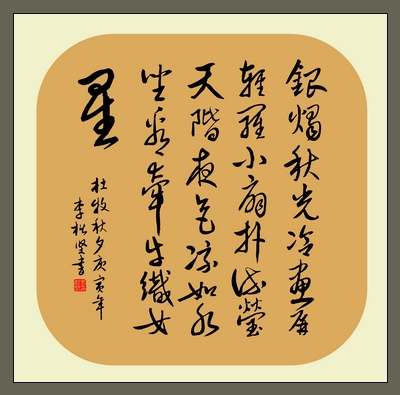 銀燭秋光冷畫屏
輕羅小扇扑流螢
天階夜色涼如水
坐看牽牛織女
星
杜牧秋夕庚寅年
李松坚書